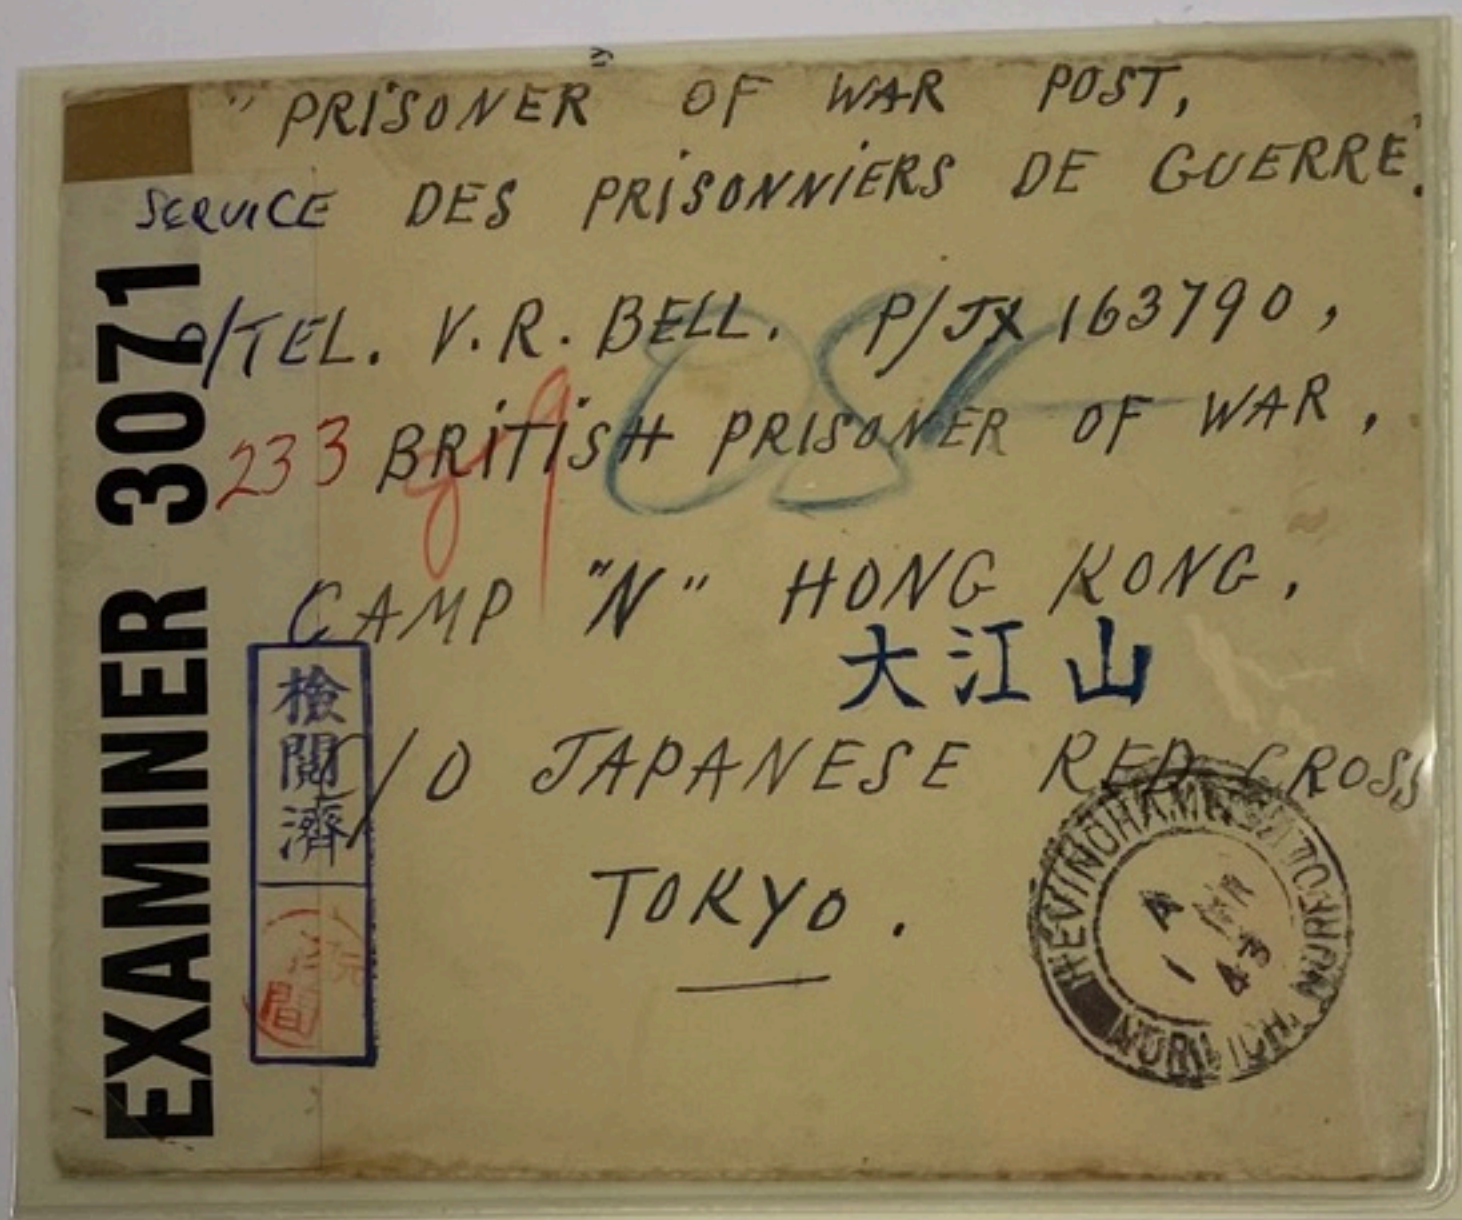 "PRISONER OF WAR POST,
SERVICE DES PRISONNIERS DE GUERRE"
O/TEL. V.R. BELL. P/JX 163790,
233 BRITISH PRISONER OF WAR,
CAMP "N" HONG KONG,
大江山
C/O JAPANESE RED CROSS
TOKYO.
EXAMINER 3071
檢閲濟
HEVINGHAM
NORWICH
1 AP
43